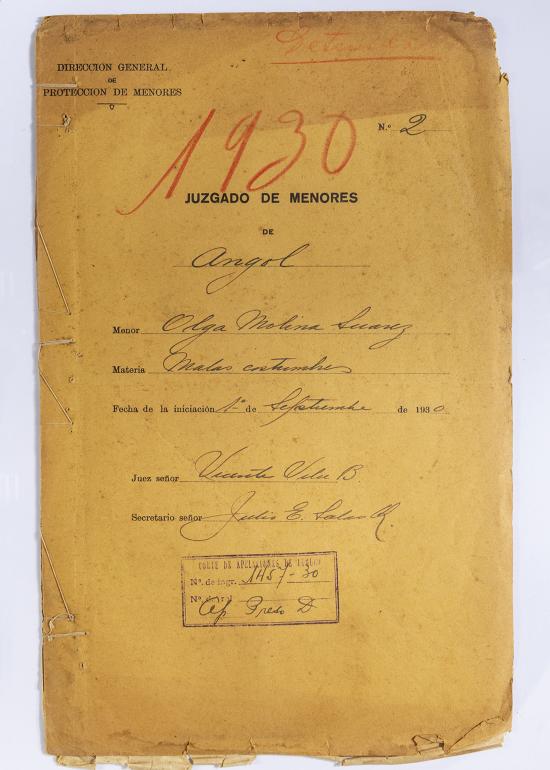 Detenida
DIRECCION GENERAL
DE
PROTECCION DE MENORES
1930
N.º 2
JUZGADO DE MENORES
DE
Angol
Menor Olga Molina Suarez
Materia Malas costumbres
Fecha de la iniciación 1º de Septiembre de 1930
Juez señor Vicente B.
Secretario señor Julio E. R.
CORTE DE APELACIONES DE TEMUCO
Nº. de ingr. 1457-30
Nº. del rol
Preso D